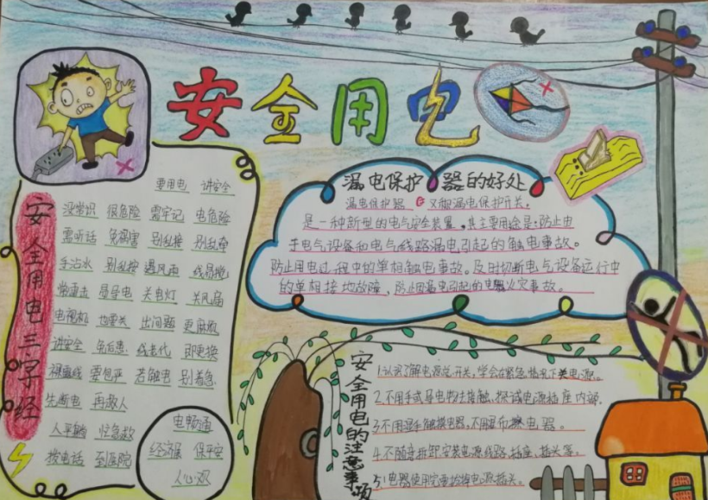 安全用电
安全用电三字经
要用电 讲安全
没常识 很危险 需牢记 电危险
需听话 免祸害 别乱接 别乱牵
手沾水 别乱按 遇风雨 线易地
常通击 易导电 关电灯 关风扇
电视机 也要关 出问题 更麻烦
讲安全 免后患 线老代 即更换
裸露线 要包严 若触电 别着急
先断电 再救人
人平躺 忙急救
按电话 到医院
电畅通
经济强 保平安
人心欢
漏电保护器的好处
漏电保护器 又叫漏电保护开关,
是一种新型的电气安全装置,其主要用途是:防止由
于电气设备和电气线路漏电引起的触电事故。
防止用电过程中的单相触电事故。及时切断电气设备运行中
的单相接地故障,防止因漏电引起的电器火灾事故。
安全用电的注意事项
1.认识了解电源总开关,学会在紧急情况下关电源。
2.不用手或导电物接触,探试电源插座内部。
3.不用湿手触摸电器,不用湿布擦电器。
4.不随意拆卸安装电源线路 插座,插头等。
5:电器使用完毕后拔电源插头。